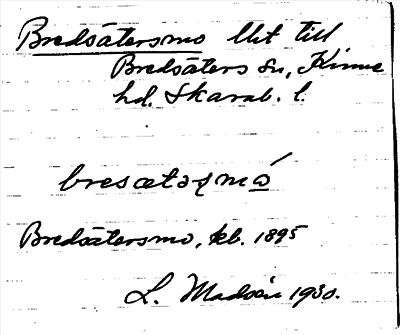 Bredsätersmo Ut till
Bredsäters sn, Kinne
hd. Skarab. l.
bresætəʂmå
Bredsätersmo, kb. 1895
L. Madsén 1930.